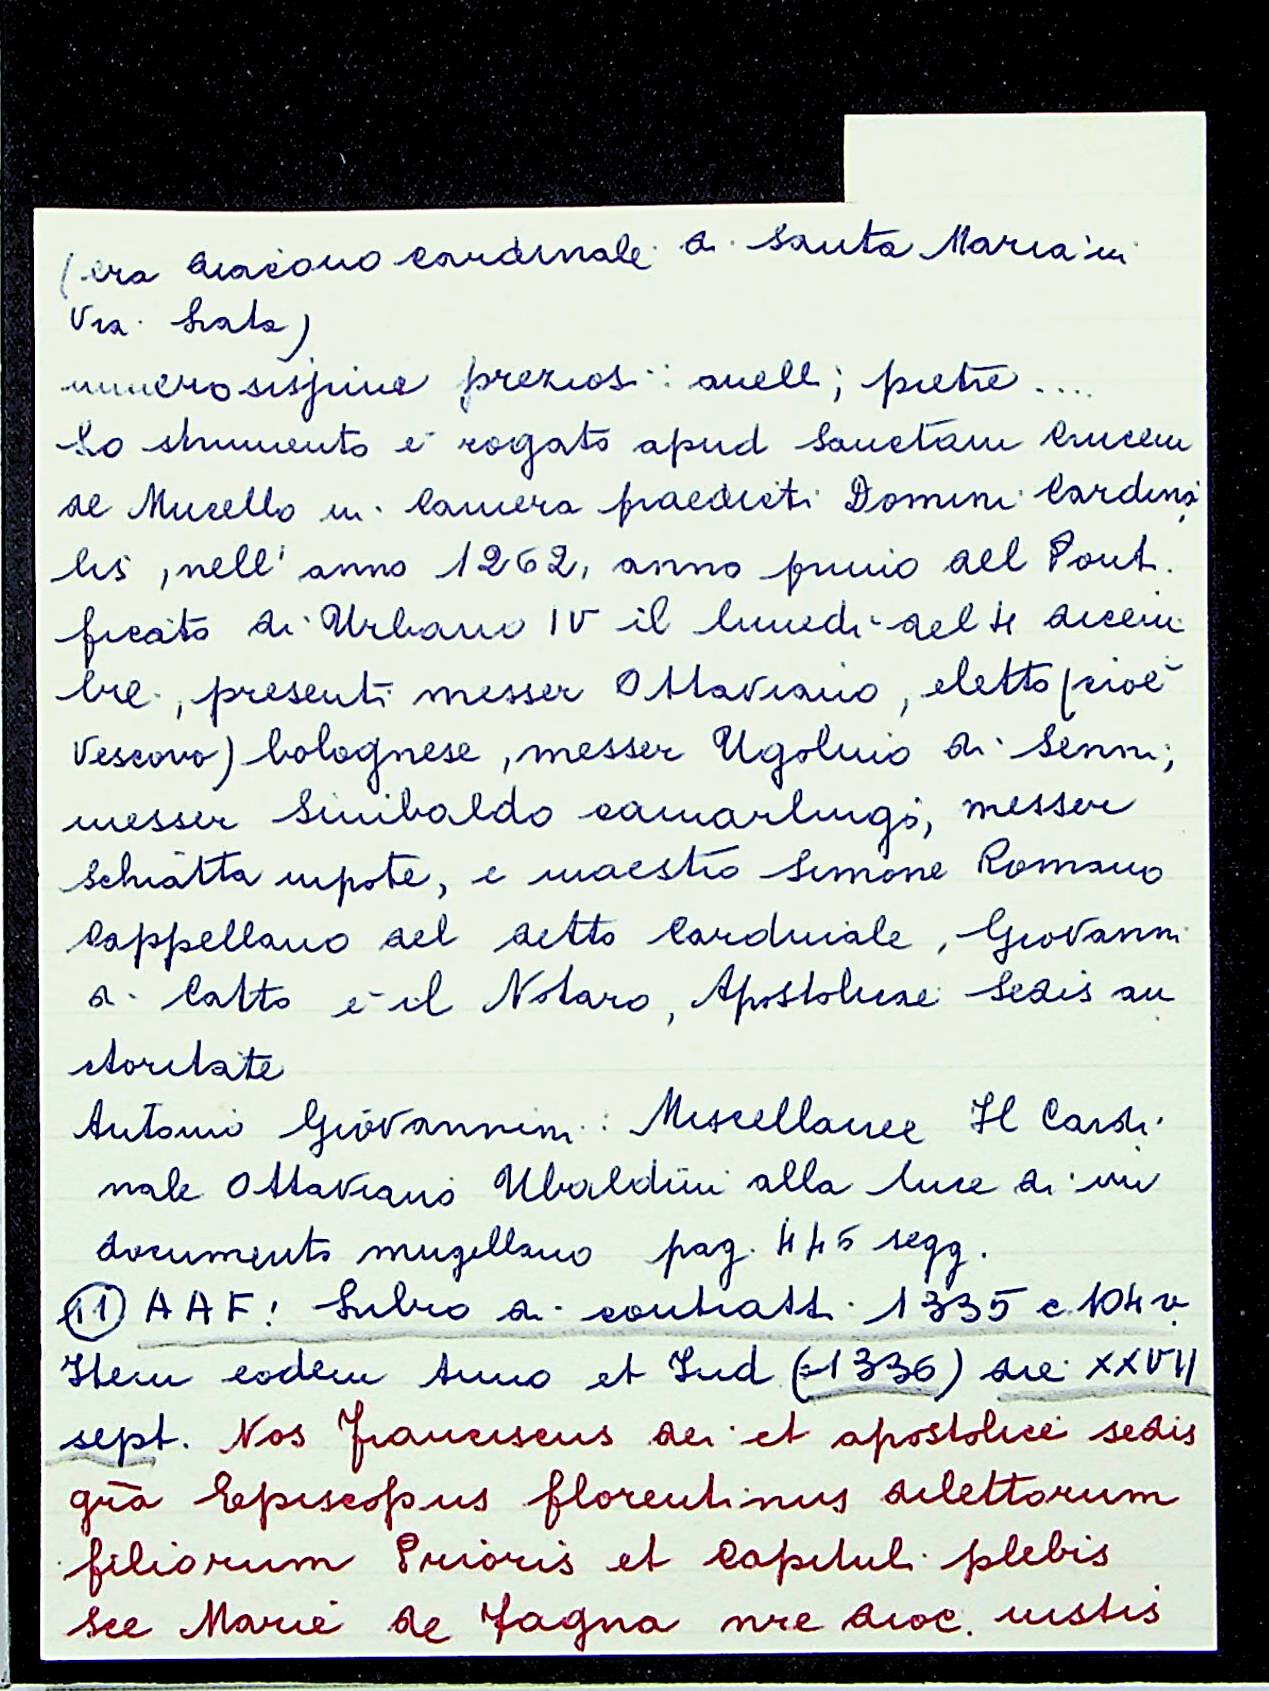 (era diacono cardinale di Santa Maria in
Via Lata)
numerosissime preziosi: anelli; pietre ....
Lo strumento è rogato apud Sanctam Crucem
de Mucello in Camera praedicti Domini Cardina
lis, nell'anno 1262, anno primo del Ponti
ficato di Urbano IV il lunedì del 4 dicem
bre, presenti messer Ottaviano, eletto (cioè
Vescovo) bolognese, messer Ugolino di Senni;
messer Sinibaldo camarlingo, messer
Schiatta nipote, e maestro Simone Romano
Cappellano del detto Cardinale, Giovanni
di Catto è il Notaro, Apostolicae Sedis au
ctoritate
Antonio Giovannini: Miscellanee Il Cardi
nale Ottaviano Ubaldini alla luce di un
documento mugellano pag. 445 segg.
(11) AAF: Libro di contratti 1335 c. 104 v.
Item eodem Anno et Ind (=1336) die XXVII
sept. Nos Franciscus dei et apostolice sedis
grā Episcopus florentinus dilettorum
filiorum Prioris et Capituli plebis
Sce Marie de Fagna nre dioc. iustis